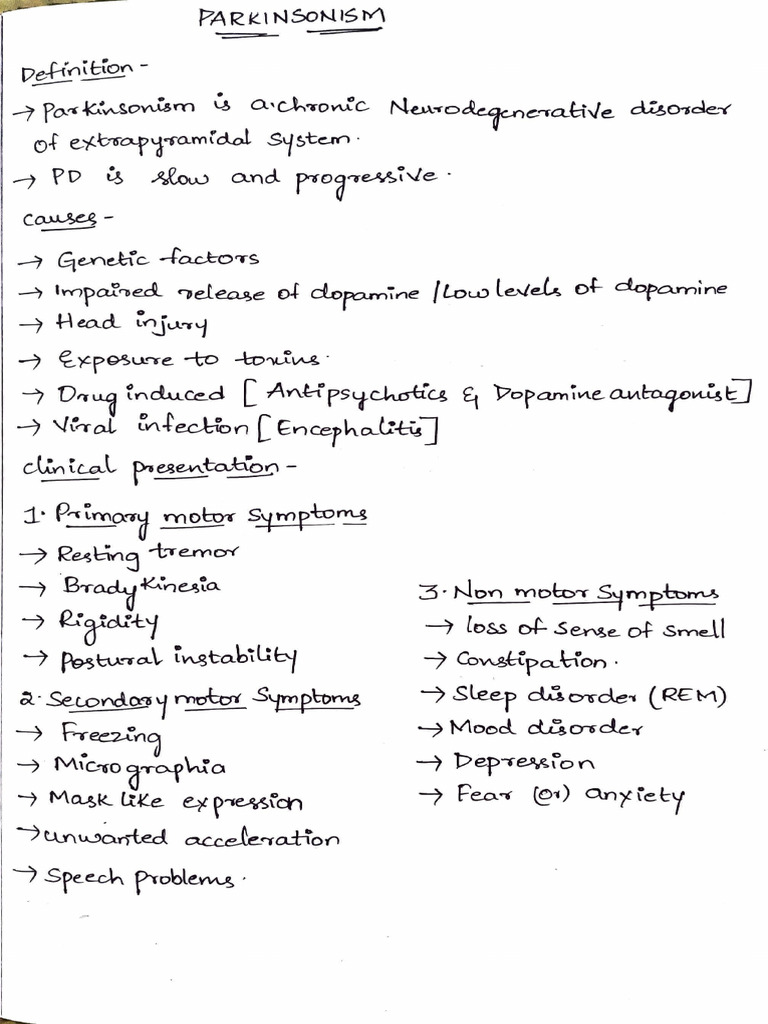 PARKINSONISM
Definition -
→ Parkinsonism is a chronic Neurodegenerative disorder
of extrapyramidal system.
→ PD is slow and progressive.
Causes -
→ Genetic factors
→ Impaired release of dopamine / Low levels of dopamine
→ Head injury
→ Exposure to toxins.
→ Drug induced [Antipsychotics & Dopamine antagonist]
→ Viral infection [Encephalitis]
Clinical presentation -
1. Primary motor symptoms
→ Resting tremor
→ Bradykinesia
→ Rigidity
→ Postural instability
2. Secondary motor Symptoms
→ Freezing
→ Micrographia
→ Mask like expression
→ unwanted acceleration
→ Speech problems.
3. Non motor Symptoms
→ loss of sense of smell
→ Constipation.
→ Sleep disorder (REM)
→ Mood disorder
→ Depression
→ Fear (or) anxiety